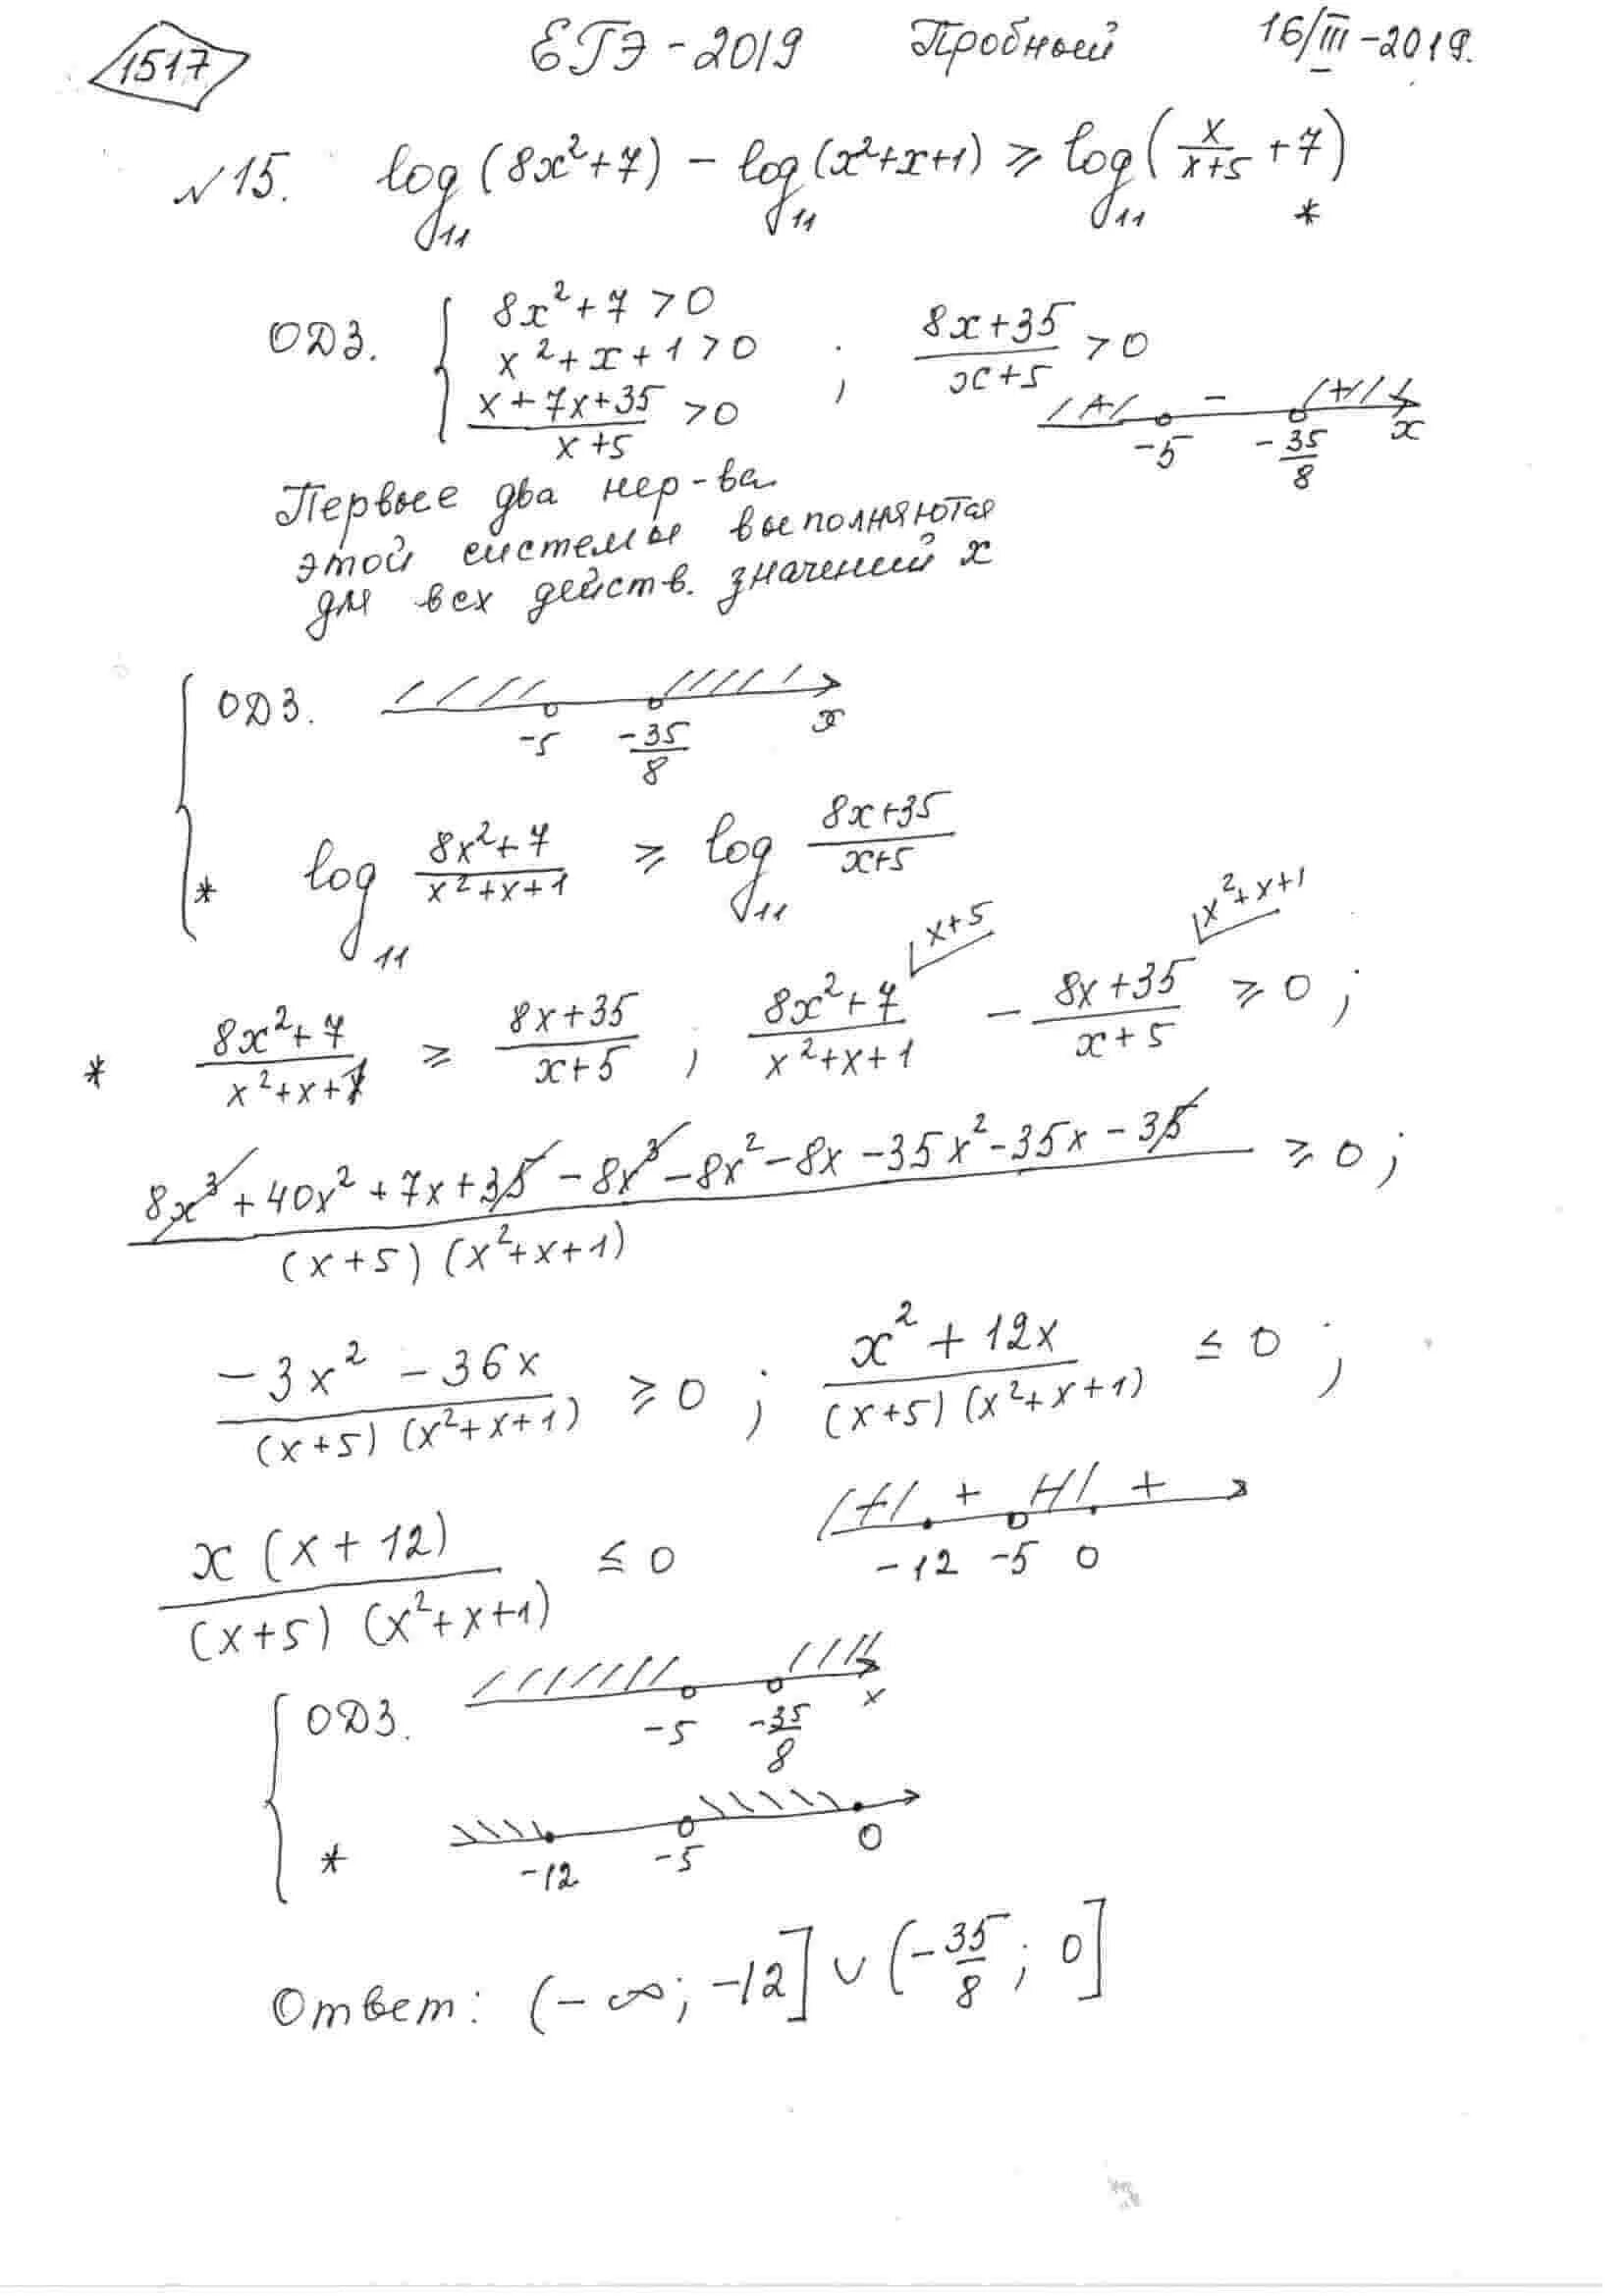 1517
ЕГЭ - 2019 Пробный 16/III - 2019.
№15. log₁₁(8x²+7) - log₁₁(x²+x+1) ≥ log₁₁(x/(x+5) + 7) *
ОДЗ. { 8x²+7 > 0
x²+x+1 > 0 ; (8x+35)/(x+5) > 0
(x+7x+35)/(x+5) > 0
+ - + -5 -35/8 x
Первые два нер-ва
этой системы выполняются
для всх действ. значений x
{ ОДЗ. -5 -35/8 x
* log₁₁ (8x²+7)/(x²+x+1) ≥ log₁₁ (8x+35)/(x+5)
* (8x²+7)/(x²+x+1) ≥ (8x+35)/(x+5) ; (8x²+7)/(x²+x+1) ⌊x+5 - (8x+35)/(x+5) ⌊x²+x+1 ≥ 0 ;
(8x³ + 40x² + 7x + 35 - 8x³ - 8x² - 8x - 35x² - 35x - 35)/((x+5)(x²+x+1)) ≥ 0 ;
(-3x² - 36x)/((x+5)(x²+x+1)) ≥ 0 ; (x² + 12x)/((x+5)(x²+x+1)) ≤ 0 ;
x(x+12)/((x+5)(x²+x+1)) ≤ 0 + + -12 -5 0
{ ОДЗ. -5 -35/8 x
* -12 -5 0
Ответ: (-∞; -12] ∪ (-35/8; 0]